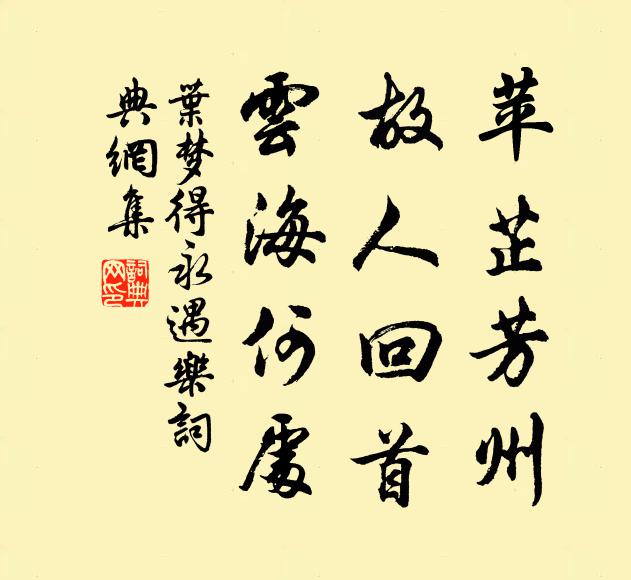 苹芷芳州
故人回首
雲海何處
葉梦得永遇樂詞
典網集
詞典网印